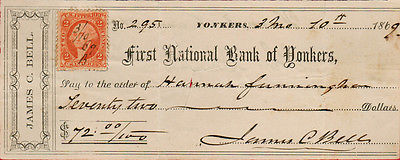 No. 295 YONKERS. 2 Mo 10th 1869
First National Bank of Yonkers,
Pay to the order of Hannah Cunningham
Seventy two Dollars.
$72.00/100 James C Bell
JAMES C. BELL.